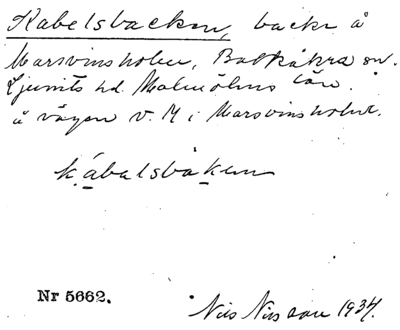 Kabelsbacken, backe å
Marsvinsholm, Balkåkra sn.
Ljunits hd. Malmöhus län.
å vägen v. M i Marsvinsholm.
kábalsbåkan
Nr 5662.
Nils Nilsson 1934.